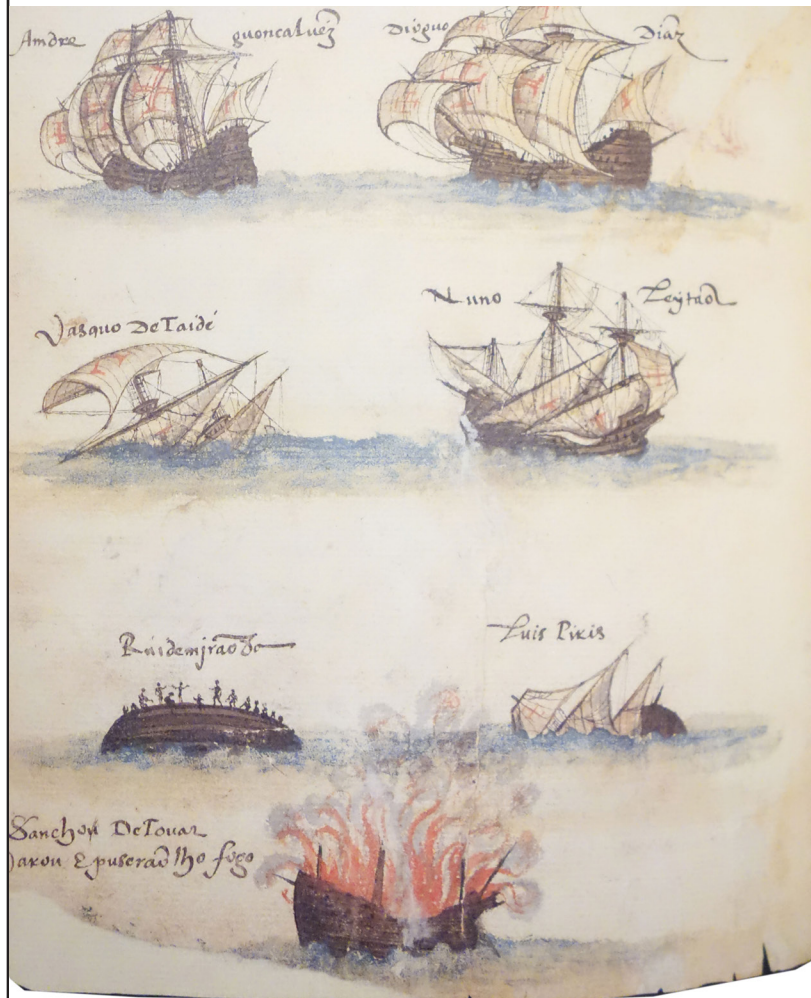 Amdre guoncaluez̃
Dioguo Diaz̃
Vasquo DeTaide
Nuno Leytaõ
Luis Piris
Sanchou DeTouar
E puseraõ lho fogo